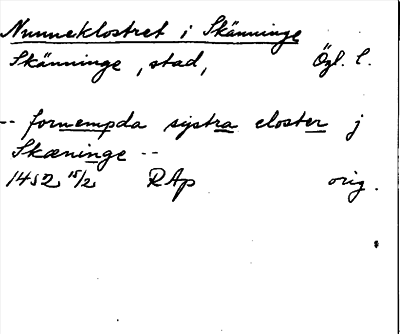 Nunneklostret i Skänninge
Skänninge, stad, Ögl. l.
-- fornempda systra closter j
Skæninge --
1452 15/2 RAp orig.